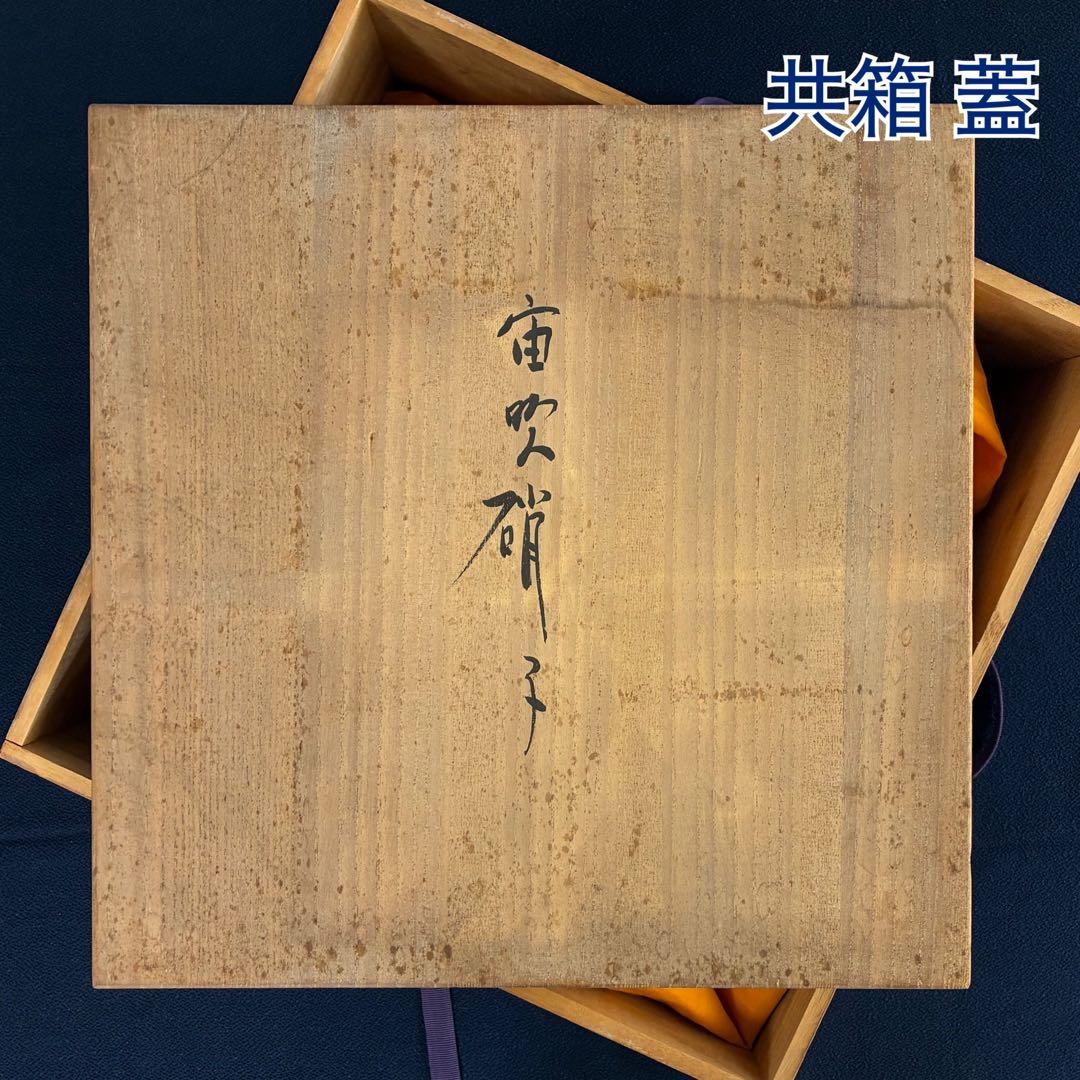 共箱 蓋
宙吹硝子